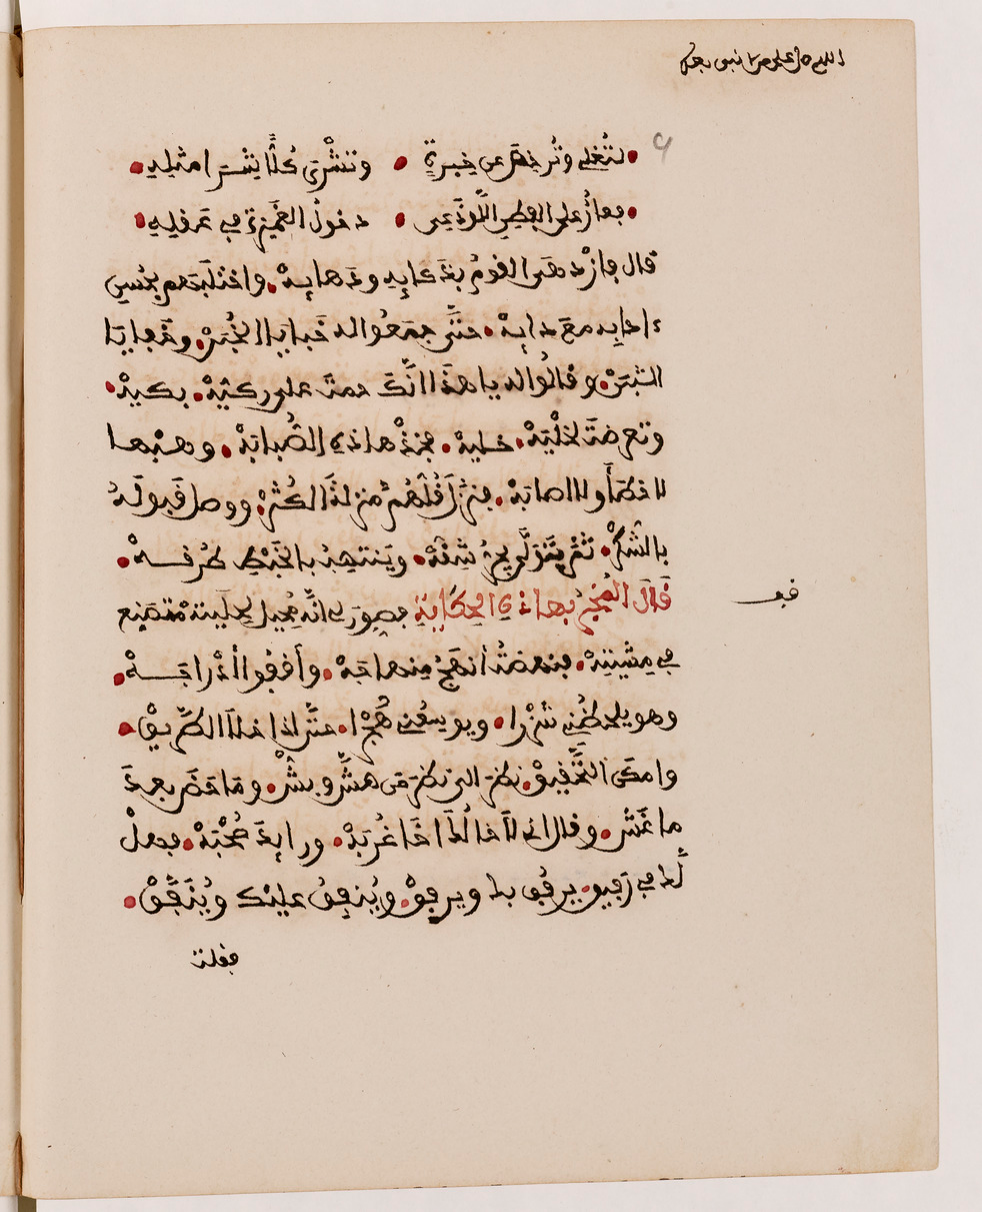 اللهم صل على من لا نبي بعده
لتُغلي وتُرخِصَ عن خِبرةٍ • وتَشْري كُلًّا بِشَرا مثلِهِ
فعارٌ على الفطِنِ اللَّوذَعي • دخولُ الغَميزة في عَقلِهِ
قال فازْدهَى القومُ بذَكايِهِ ودَهايِهْ. واختلبَهم بحُسنِ
ءادايِه معَ دايِهْ. حتَّى جمَعُوا له خَبايا الخُبَنْ. وخَفايا
الثبَنْ. وقالُوا له يا هذَا انَّكَ حمتَ على ركيّهْ. بكيهْ.
وتعرضتَ لخلْيّهْ. خليهْ. فخذْ هاذه الصُّبابَهْ. وهبْها
لا خطأً ولا اصابَهْ. فنزَّلَ قُلَّهُمْ منزلةَ الكُثْرْ. ووصل قَبولَهُ
بالشكرْ. ثمّ تَوَلَّى يجرُّ شِقَّهْ. ويَنتهبُ بالخَبْطِ طرُقهْ.
قالَ المُخبِرُ بهاذه الحِكايةِ فصوِّرَ لي انَّه مُحِيل لحِلْيته مُتصَنِع
في مِشْيتِهْ. فنهضتُ أنهَجُ مِنهاجَهْ. وأقفُوا أدْراجَهْ
وهو يلحظُنِي شَزْرا. ويوسعُني هُجْرا. حتَّى اذا خلا الطَّريقْ.
وامكنَ التَّحْقيقْ. نظرَ الي نظرَ مَن هشَّ وبشّْ. ومَاحَضَ بعدَ
ما غَشّْ. وقال اني لأخالُكَ أخَا غُربَهْ. ورايِدَ صُحْبَهْ. فهلْ
لَك في رَفيقٍ. يرفُق بك ويرفِقْ. ويُنفِقُ عليْك ويُنَفِّقْ.
فقلت
قف